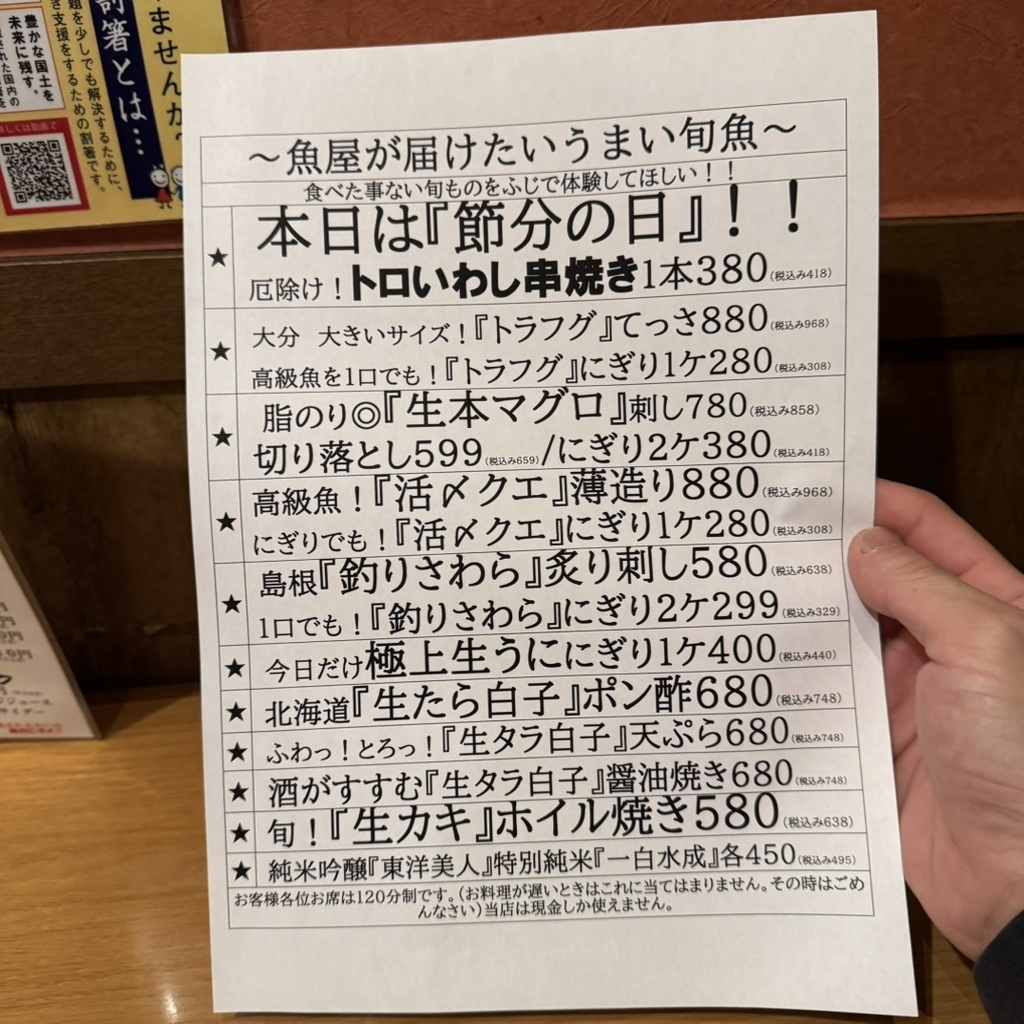 ～魚屋が届けたいうまい旬魚～
食べた事ない旬ものをふじで体験してほしい！！
★ 本日は『節分の日』！！
厄除け！トロいわし串焼き1本380(税込み418)
★ 大分 大きいサイズ！『トラフグ』てっさ880(税込み968)
高級魚を1口でも！『トラフグ』にぎり1ケ280(税込み308)
★ 脂のり◎『生本マグロ』刺し780(税込み858)
切り落とし599(税込み659)/にぎり2ケ380(税込み418)
★ 高級魚！『活〆クエ』薄造り880(税込み968)
にぎりでも！『活〆クエ』にぎり1ケ280(税込み308)
★ 島根『釣りさわら』炙り刺し580(税込み638)
1口でも！『釣りさわら』にぎり2ケ299(税込み329)
★ 今日だけ極上生うににぎり1ケ400(税込み440)
★ 北海道『生たら白子』ポン酢680(税込み748)
★ ふわっ！とろっ！『生タラ白子』天ぷら680(税込み748)
★ 酒がすすむ『生タラ白子』醤油焼き680(税込み748)
★ 旬！『生カキ』ホイル焼き580(税込み638)
★ 純米吟醸『東洋美人』特別純米『一白水成』各450(税込み495)
お客様各位お席は120分制です。(お料理が遅いときはこれに当てはまりません。その時はごめ
んなさい)当店は現金しか使えません。
ませんか？
割箸とは…
題を少しでも解決するために、
支援をするための割箸です。
豊かな国土を
未来に残す。